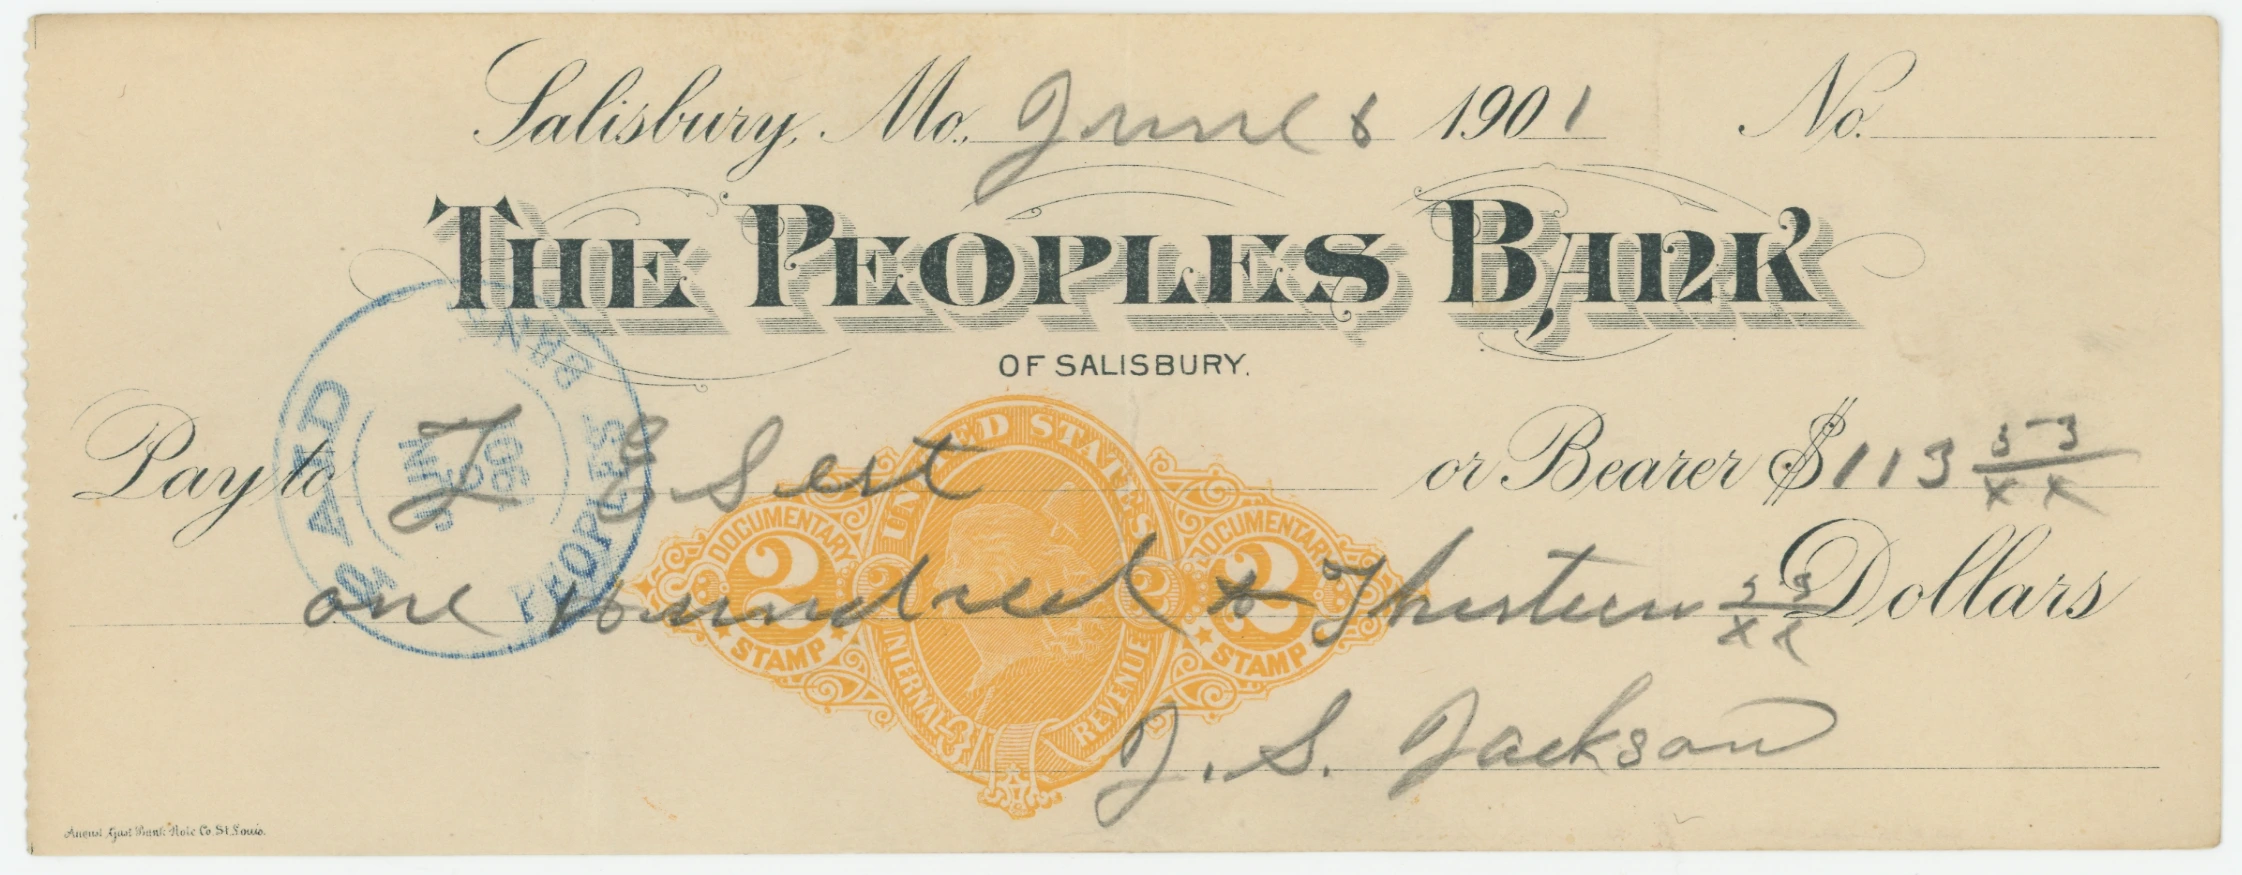 Salisbury, Mo. June 8 1901 No.
THE PEOPLES BANK
OF SALISBURY.
Pay to E Sert or Bearer $113 33/xx
one hundred & Thirteen 33/xx Dollars
J. S. Jackson
PAID
JUN
1901
PEOPLES BANK
UNITED STATES
INTERNAL REVENUE
DOCUMENTARY
2
STAMP
2
2
DOCUMENTARY
2
STAMP
August Gast Bank Note Co. St. Louis.